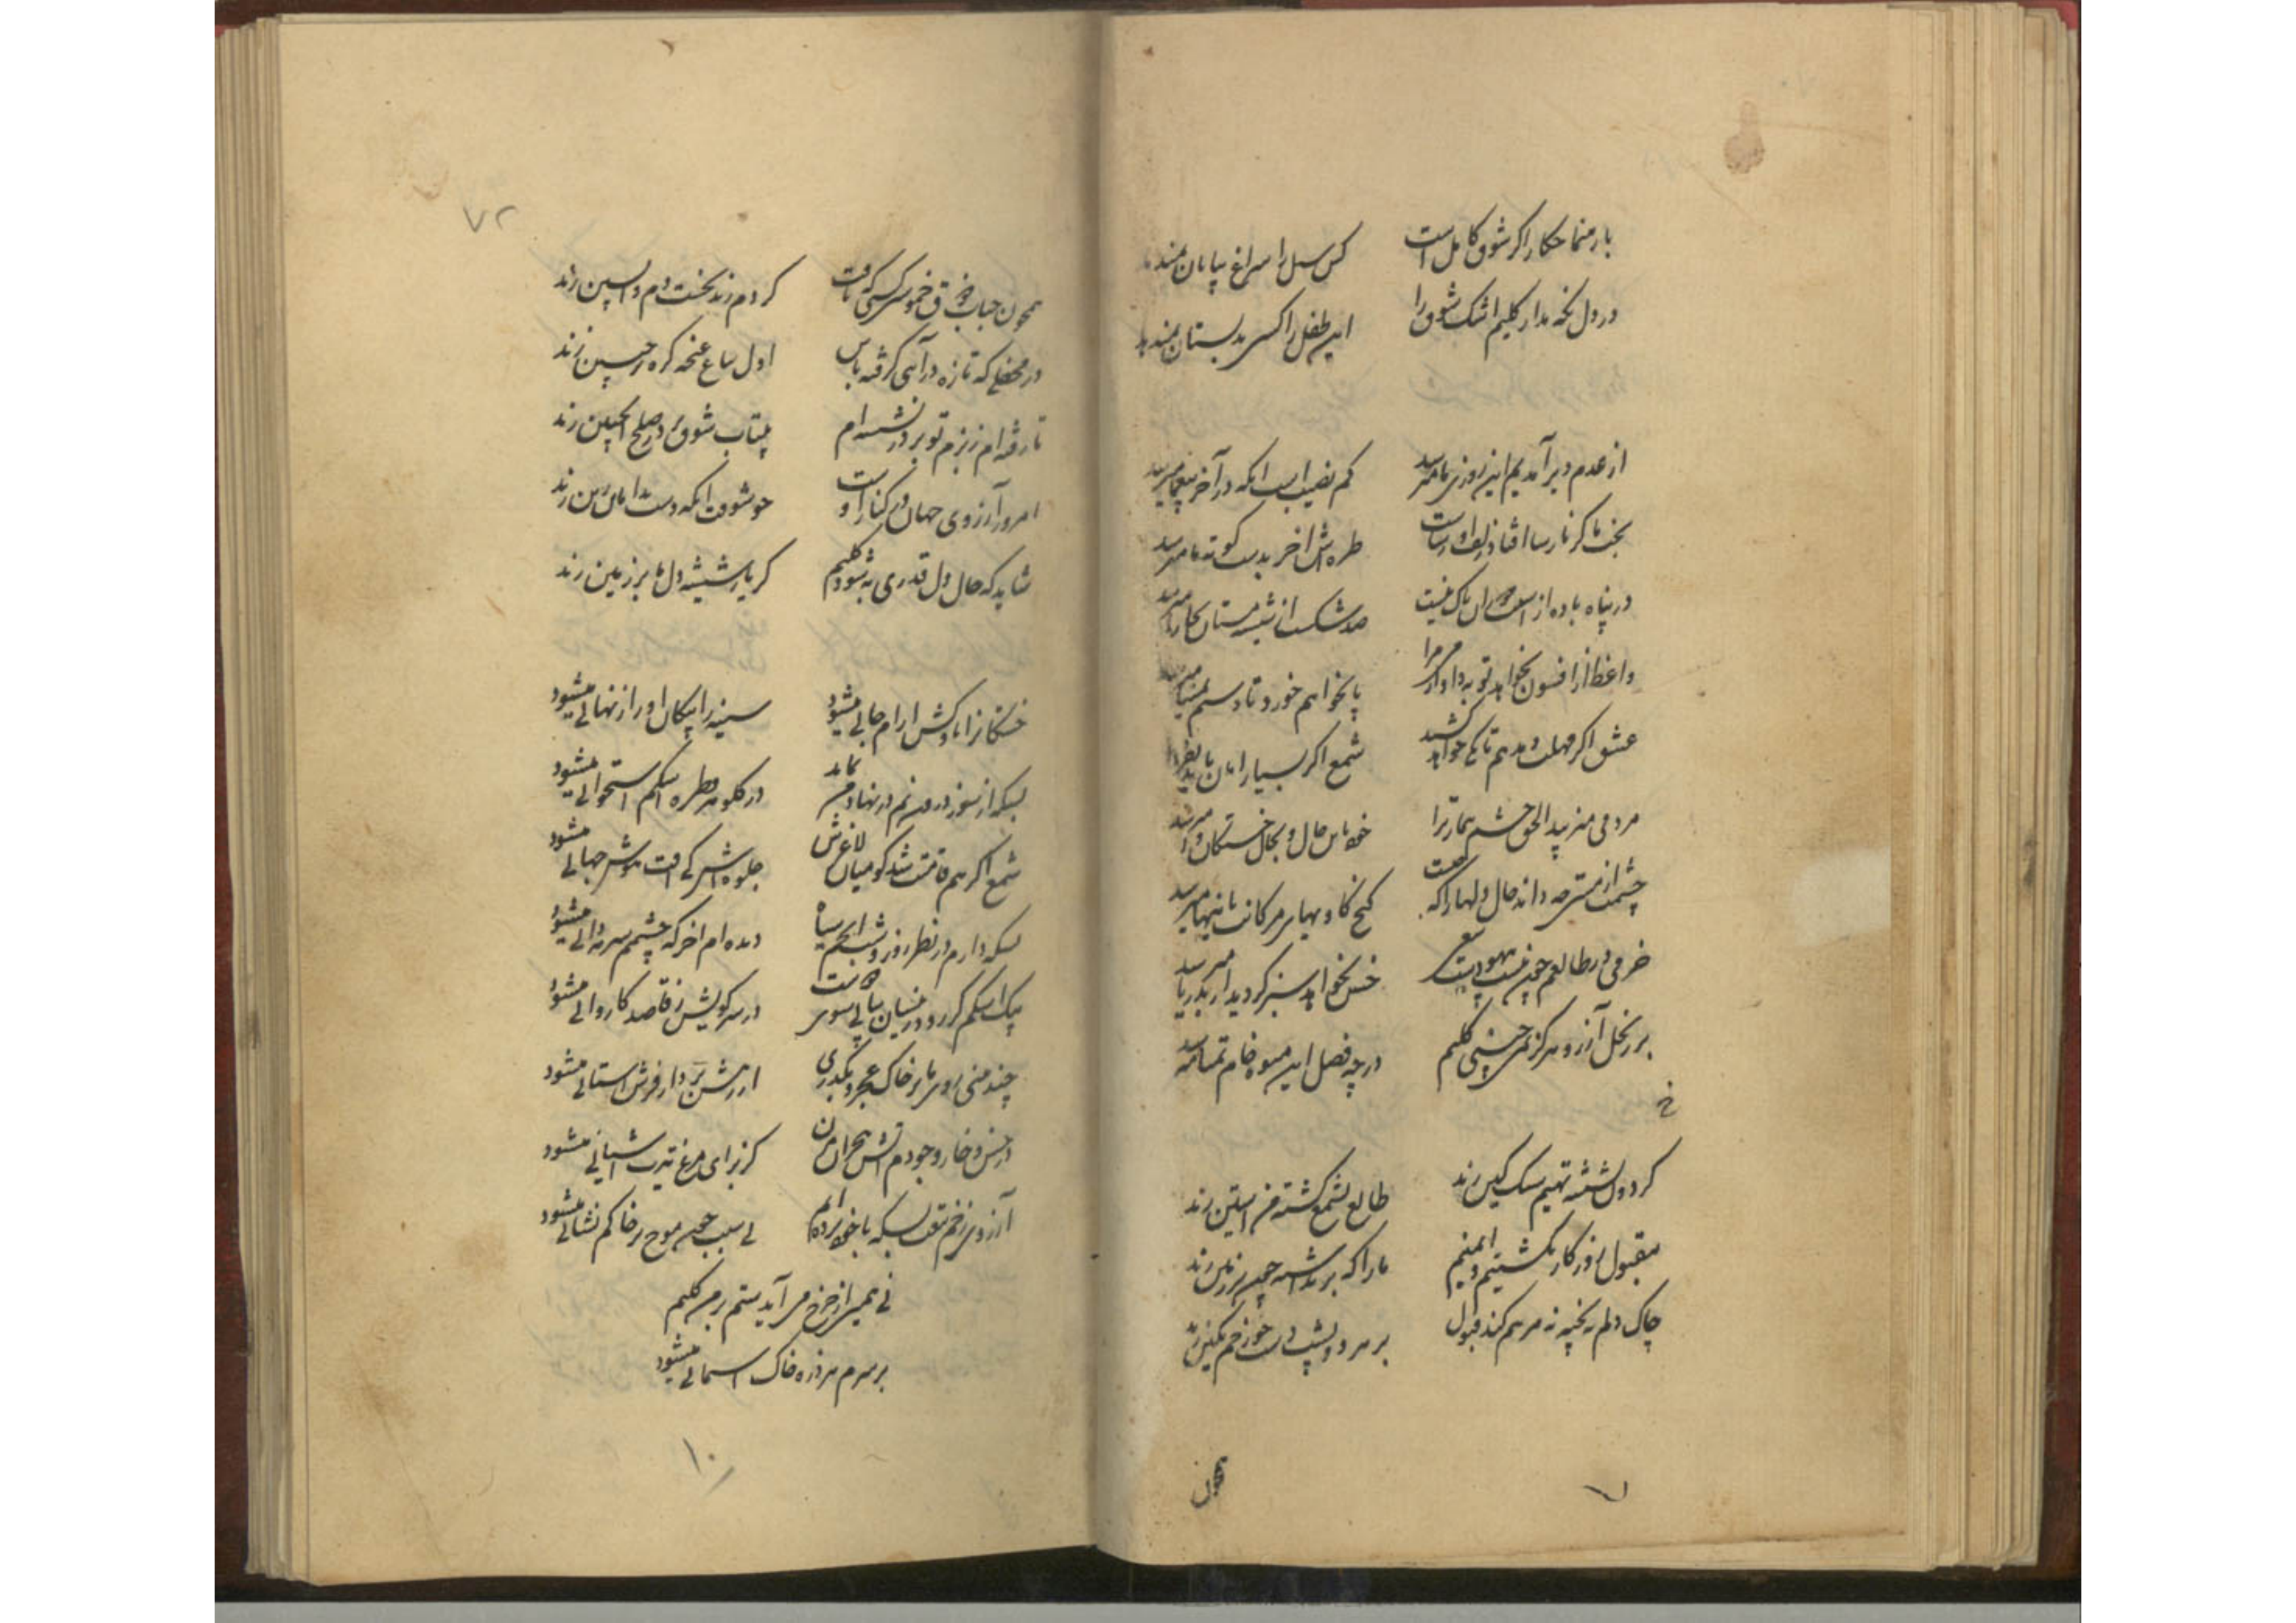 با رهنما چکار اگر شوق کامل است کس سیل را سراغ بیابان نمیدهد
در دل نگه مدار کلیم اشک شوق را این طفل را کسی بدبستان نمیدهد
از عدم دیر آمدیم این روزی ما میرسد کم نصیب است آنکه در آخر بیغما میرسد
بخت ما گر نارسا افتاد زلف او رساست طره اش آخر بدست کوته ما میرسد
در پناه باده از آسیب دوران باک نیست صد شکست از شیشه مستان بخارا میرسد
واعظ از افسون نخواهد توبه داد از می مرا پا نخواهم خورد تا دستم بمینا میرسد
عشق اگر مهلت دهد هم تا کی خواهد کشید شمع اگر بسیار امان یابد
مردمی میزیبد الحق چشم بیمار ترا خود باین حال و بحال خستگان وا میرسد
چشمت از مستی چه داند حال دلها را که چیست کنج کاویهای مژگانت باینها میرسد
خرمی در طالعم چون نیست بهبود از سعی خس نخواهد سبز گردید ار بدریا میرسد
بر ز نخل آرزو هرگز نمی چینی کلیم در چه فصل این میوه خام تمنا میرسد
گردون بشیشه تهیم سنگ کین زند طالع بشمع کشته من آستین زند
مقبول روزگار نگشتیم و ایمنیم ما را که برنداشته چون بر زمین زند
چاک دلم نه بخیه نه مرهم کند قبول بر هر دو پشت دست چو زخم نگین زند
همچون
۷
۷۲
همچون حباب خرق خموشی کسی که یافت گر دم زند نخست دم واپسین زند
در محفلی که تازه درآئی گرفته باش اول بباغ غنچه گره بر جبین زند
تا رفته ام ز بزم تو بر در نشسته ام بیتاب شوق در صلح اینچنین زند
امروز آرزوی جهان در کنار اوست خوشوقت آنکه دست بدامان زین زند
شاید که حال دل قدری به شود کلیم گر یار شیشه دل ما بر زمین زند
خستگانرا ناوکش آرام جانی میشود سینه را پیکان او راز نهانی میشود
بسکه از سوز درون نم در نهاد من نماند در گلو هر قطره اشکم استخوانی میشود
شمع اگر هم قامتت شد کو میان لاغرش جلوه اش گیرافت هوش جهانی میشود
بسکه دارم در نظر روز و شب ابر سیاه دیده ام آخر که چشمم سرمه دانی میشود
پیک اشکم گر رود زینسان پیاپی سوی دوست در سر کویش ز قاصد کاروانی میشود
چند منی روی ما بر خاک عجز و بگذری از درش بردار فرش آستانی میشود
در خس و خار وجودم آتش هجران مزن کز برای مرغ تیرت آشیانی میشود
آرزوی زخم تیغت بسکه با خود برده ام بی سبب چون موج بر خاکم نشانی میشود
نی همین از چرخ می آید ستم بر من کلیم
بر سرم هر ذره خاک آسمانی میشود
۱۰